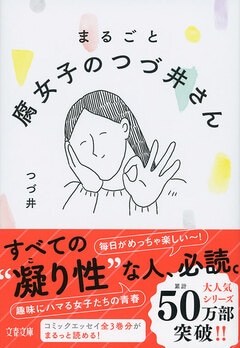 まるごと
腐女子のつづ井さん
つづ井
毎日がめっちゃ楽しい〜!
すべての
“凝り性”な人、必読。
こ しょう
趣味にハマる女子たちの青春
コミックエッセイ全3巻分が
まるっと読める!
累計
50万部
突破!!
大人気
シリーズ
文春文庫